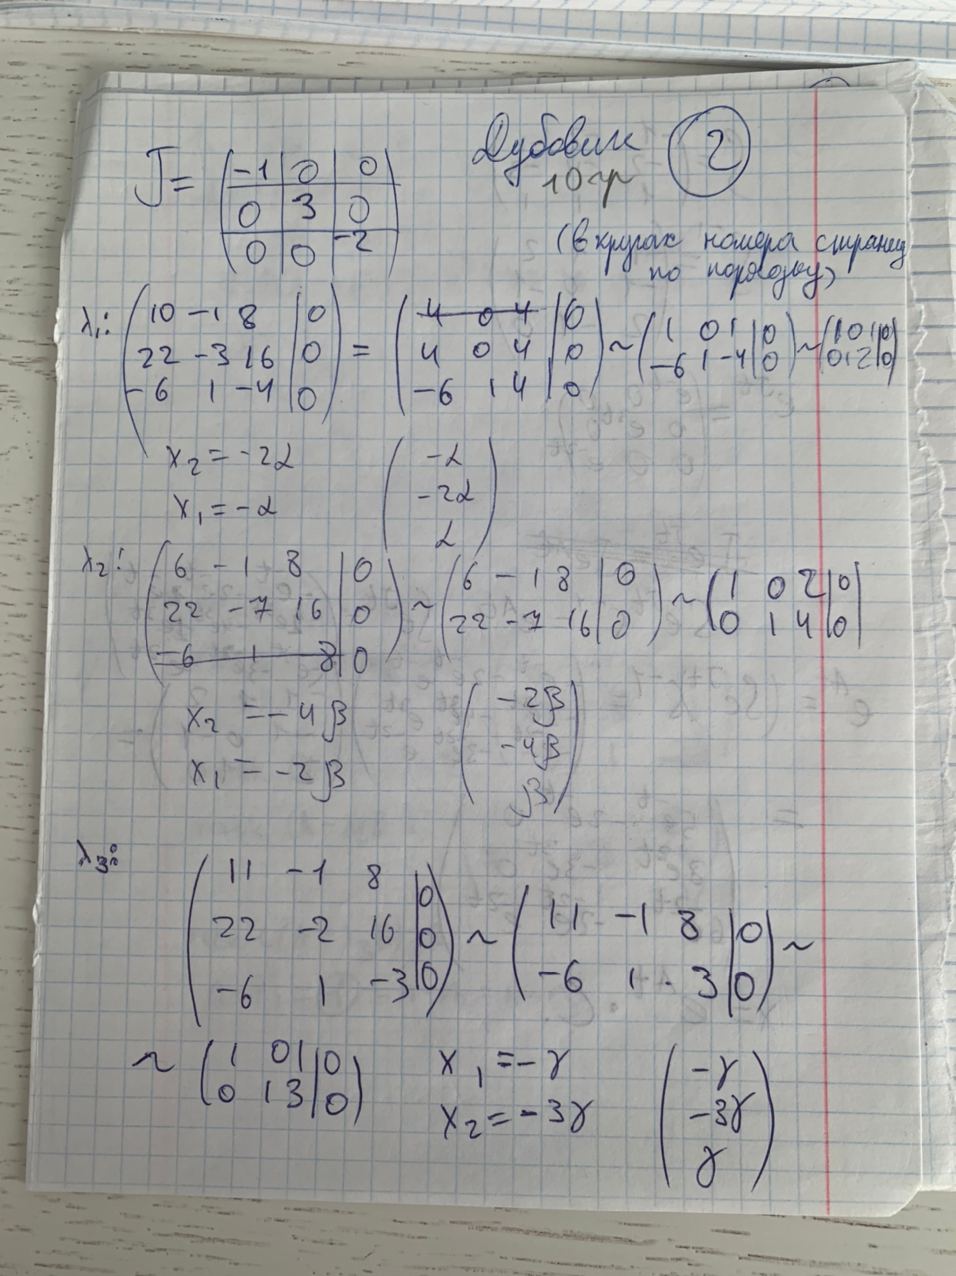 Дубовик ②
10гр
J = (-1 0 0
0 3 0
0 0 -2)
(в кругах номера страниц
по порядку)
λ₁: (10 -1 8 | 0
22 -3 16 | 0
-6 1 -4 | 0) = (4 0 4 | 0
4 0 4 | 0
-6 1 4 | 0) ~ (1 0 1 | 0
-6 1 -4 | 0) ~ (1 0 1 | 0
0 1 2 | 0)
x₂ = -2α
x₁ = -α
(-α
-2α
α)
λ₂: (6 -1 8 | 0
22 -7 16 | 0
-6 1 8 | 0) ~ (6 -1 8 | 0
22 -7 16 | 0) ~ (1 0 2 | 0
0 1 4 | 0)
x₂ = -4β
x₁ = -2β
(-2β
-4β
β)
λ₃: (11 -1 8 | 0
22 -2 16 | 0
-6 1 -3 | 0) ~ (11 -1 8 | 0
-6 1 3 | 0) ~
~ (1 0 1 | 0
0 1 3 | 0)
x₁ = -γ
x₂ = -3γ
(-γ
-3γ
γ)